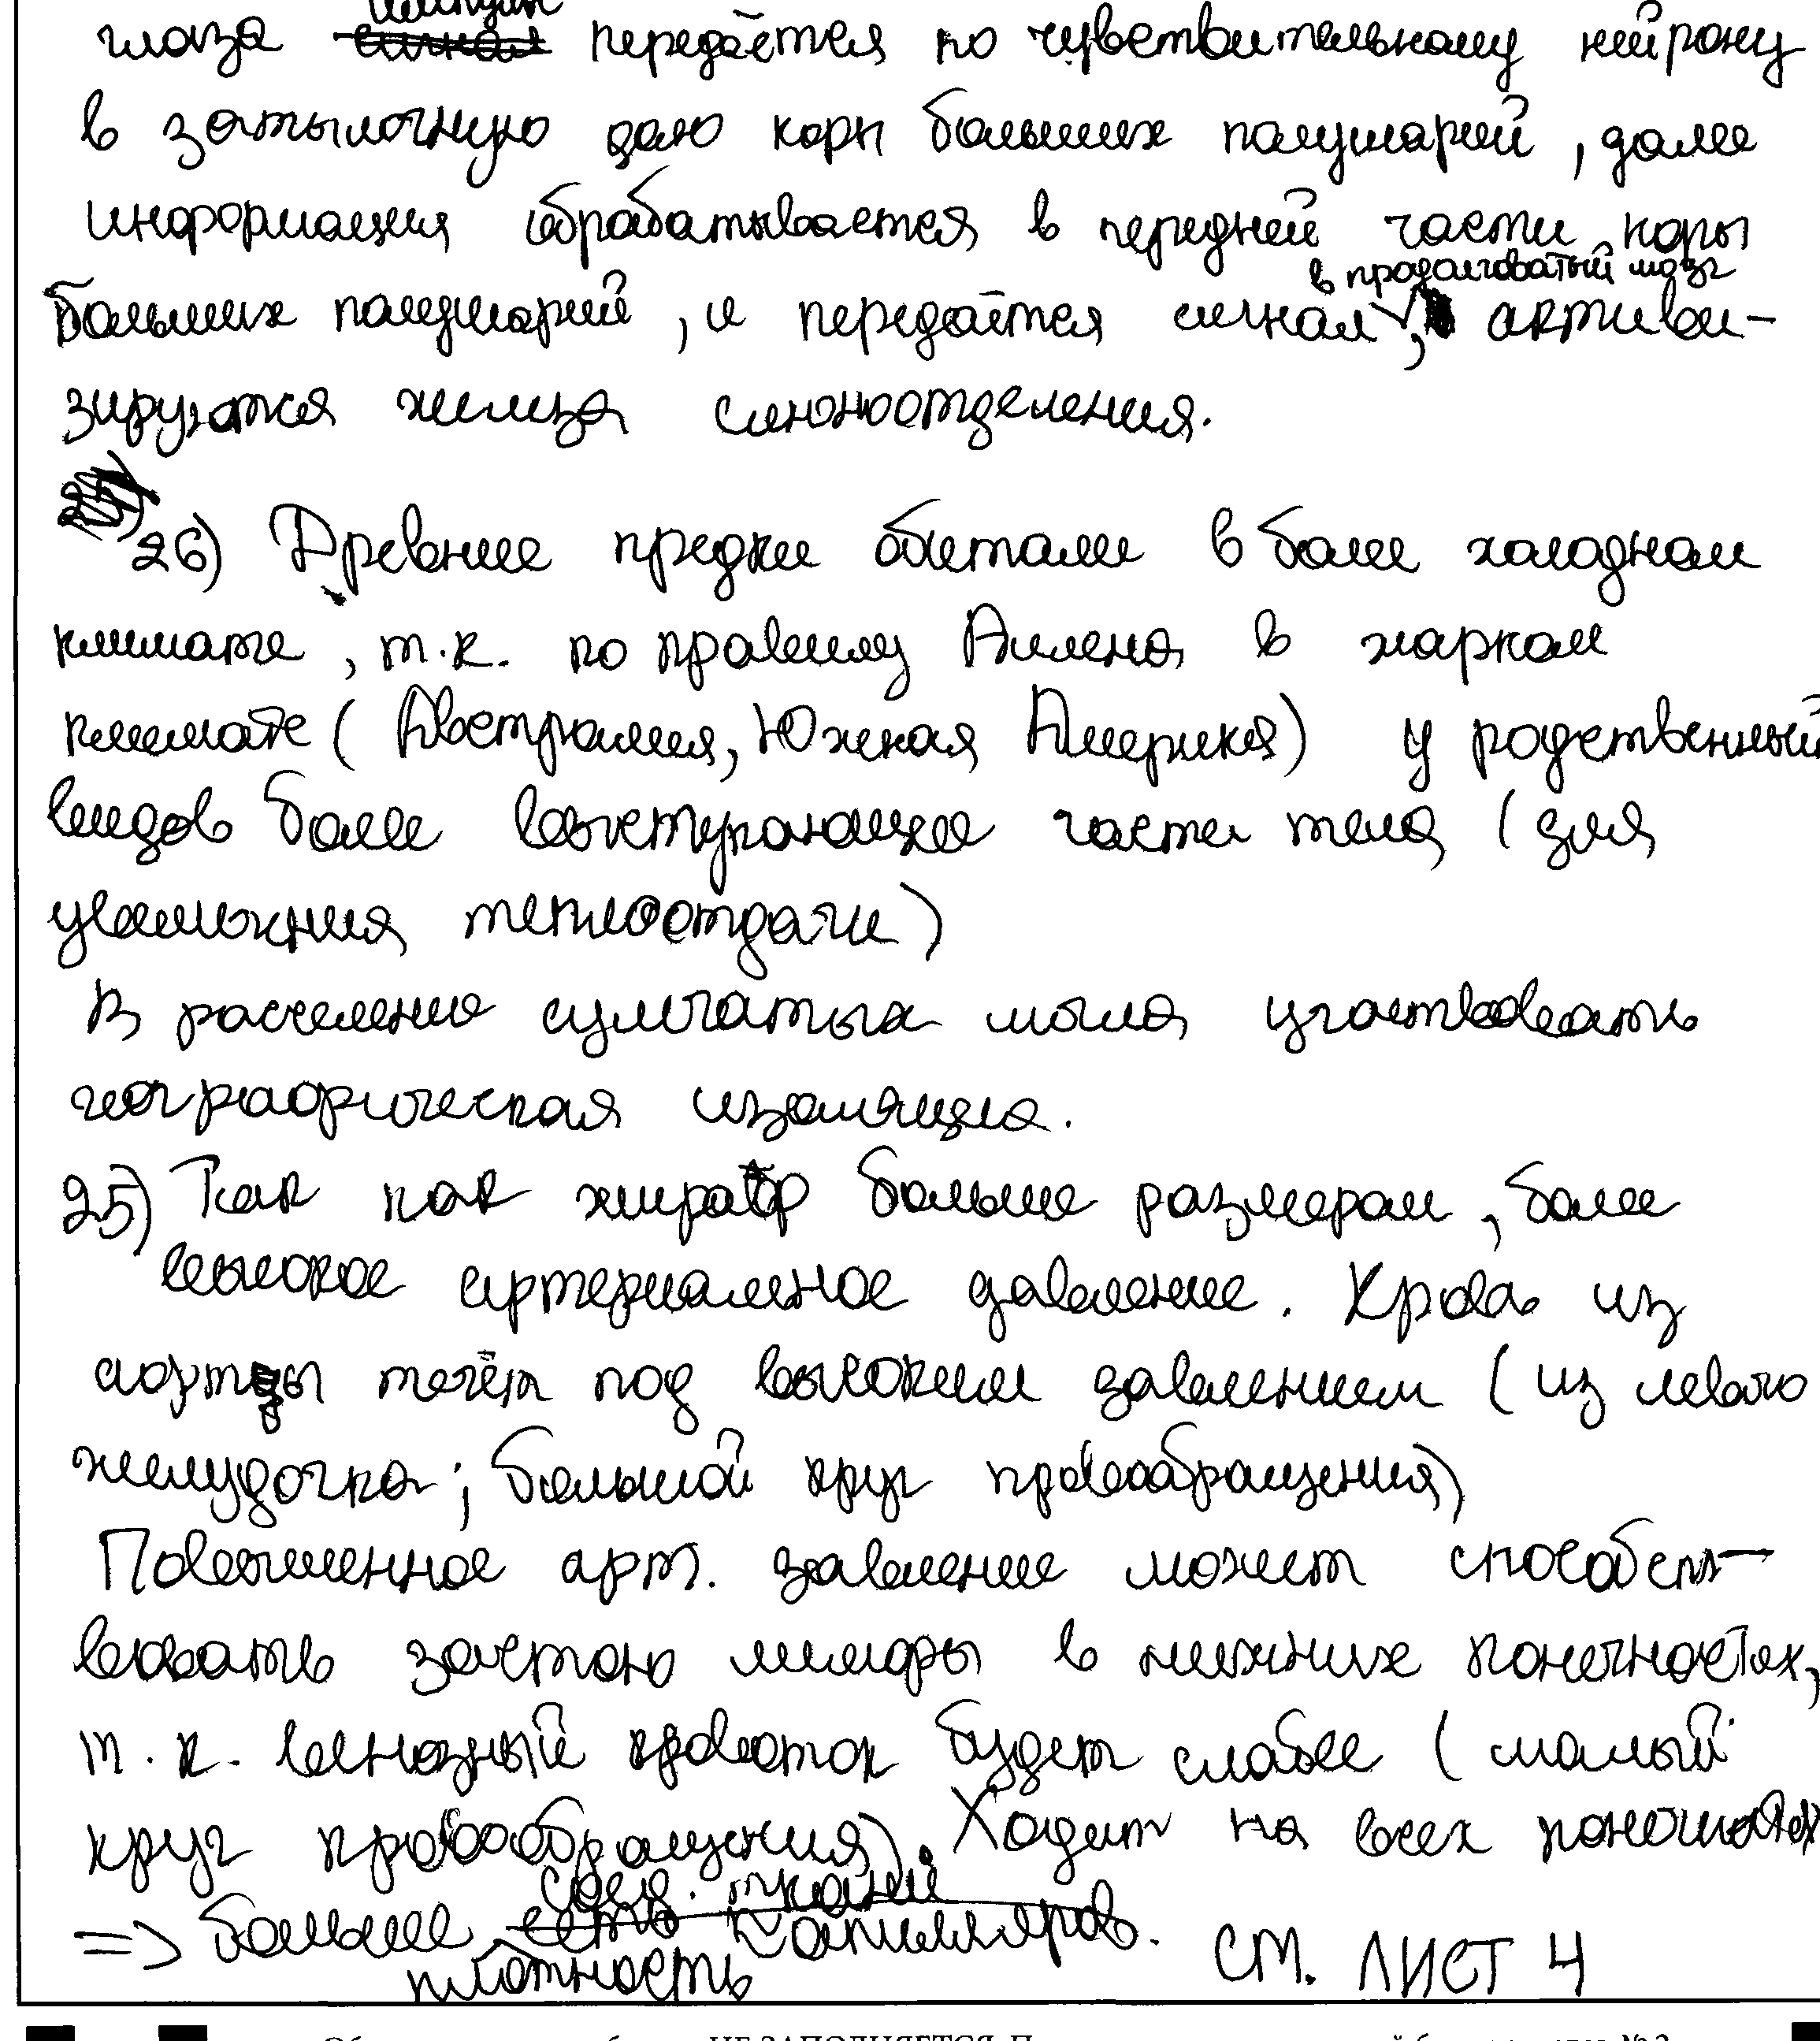 импульс
глаза сигнал передаётся по чувствительному нейрону
в затылочную долю коры больших полушарий, далее
информация обрабатывается в передней части коры
в продолговатый мозг
больших полушарий, и передаётся сигнал, активи-
зируются железа слюноотделения.
25) 26) Древние предки обитали в более холодном
климате, т.к. по правилу Алена в жарком
климате (Австралия, Южная Америка) у родственный
видов более выступающие части тела (для
увеличения теплоотдачи)
В расселение сумчатых могла участвовать
географическая изоляция.
25) Так как жираф больше размером, более
высокое артериальное давление. Кровь из
аорты течёт под высоким давлением (из левого
желудочка; большой круг кровообращения)
Повышенное арт. давление может способст-
вовать застою лимфы в нижних конечностях,
т.к. венозный кровоток будет слабее (малый
круг кровообращения). Ходит на всех конечностях
соед. ткани
=> больше есть капилляров. СМ. ЛИСТ 4
плотность